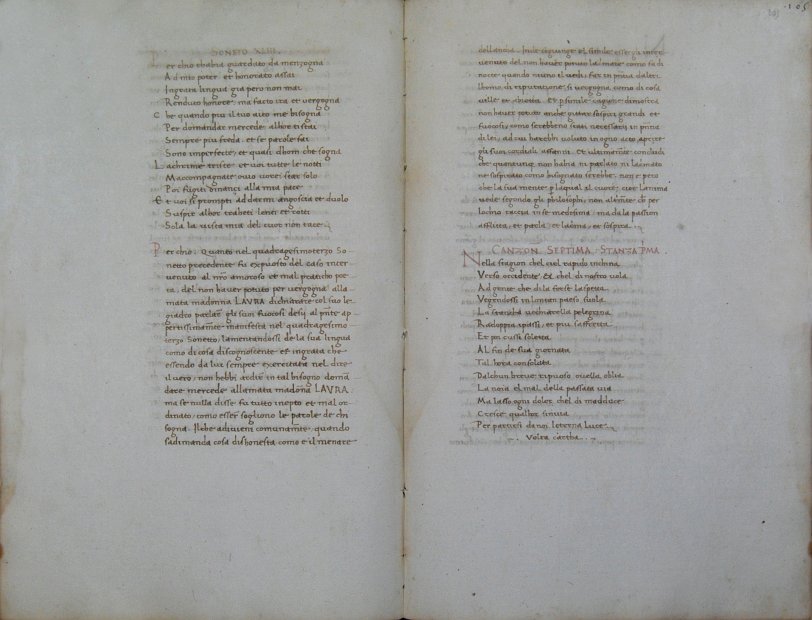 SONETO XLIII.
Per chio thabia guardato da menzogna
A dmio poter et honorato assai
Ingrata lingua gia pero non mai
Renduto honore ma facto ira et vergogna
Che quando piu il tuo aito me bisogna
Per domandar mercede alhor ti stai
Sempre piu freda et se parole fai
Sono imperfecte et quasi dhom che sogna
Lachrime triste et voi tutte le notti
Maccompagnate ovio vorei star solo
Poi fugiti dinanci alla mia pace
Et voi si prompti ad darmi angoscia et duolo
Suspir alhor trabeti lenti et rotti
Sola la vista mia del cuor non tace
Per chio. Quanto nel quadragesimoterzo So
netto precedente fu exposto del caso inter
venuto al nro amoroso et mal praticho poe
ta, del non haver potuto per vergogna alla
mata madonna LAURA dichiarare col suo le
giadro parlare gli suoi fuocosi desij al pnte ap
pertissimamte manifesta nel quadragesimo
terzo Sonetto, lamentandossi de la sua lingua
como di cosa discognoscente et ingrata che
essendo da lui sempre exercitata nel dire
il vero, non hebbi ardire in tal bisogno doma
dare mercede allamata madona LAURA
ma se nulla disse fu tutto inepto et mal or
dinato, como esser sogliono le parole de chi
sogna. Ilche adivieni comunamte quando
sadimanda cosa dishonesta como e il menare
dellancha. Inde sogiunge el simile essergli inter
venuto del non haver potuto la mate como fa di
nocte quando niuno el vedi, far in pntia daltri
lhomo di riputatione, si vergogna, como di cosa
ville et abietta. Et p simile cagione dimostra
non haver potuto anche gittar sospiri grandi et
fuocosi, como serebbeno stati necessarij in pntia
di lei, ad cui harebbi voluto in ogni acto aprire
gli suoi cordiali affanni. Et ultimamte conchudi
che quanunq non habia ni parlato ni lacimato
ne sospirato como bisognato serebbe, non e pero
che la sua mente p laqual al cuore cioe lanima
vede segondo gli philosophi, non alimte ch per
lochio taccia in se medesima, ma da la passion
afflicta, et parla et lacima, et sospira.
CANZON SEPTIMA. STANZA PMA.
Nella stagion chel ciel rapido inchina
Verso occidente, et chel di nostro vola
Ad gente che di la forsi laspetta
Veggendossi in lontan paese suola
La stancha vechiarella pelegrina
Radoppia ipassi, et piu saffretta
Et poi cussi soletta
Al fin de sua giornata
Tal hora consolata
Dalchun breve riposso ovella oblia
La noia el mal della passata via
Ma lasso ogni dolor chel di madduce
Cresce qualhor sinvia
Per partirsi da noi leterna Luce
Volta cartha
105